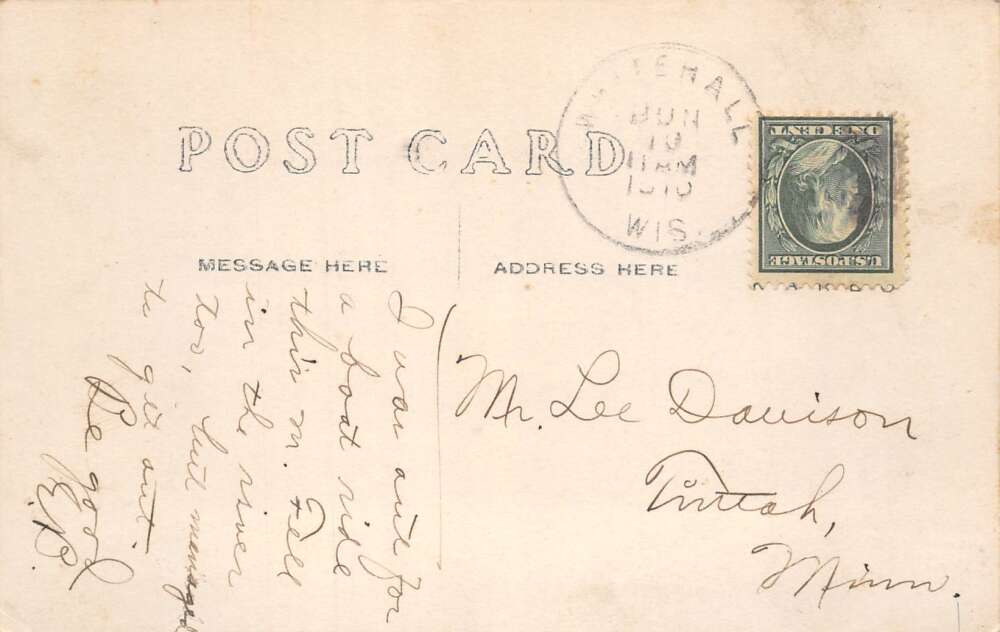 POST CARD
WHITEHALL
JUN
10
11 AM
1910
WIS.
ONE CENT
U.S. POSTAGE
MESSAGE HERE
ADDRESS HERE
I was out for
a boat ride
this m. Fell
in the river
too, but managed
to get out.
Be good
E.P.
Mr. Lee Davison
Tintah,
Minn.